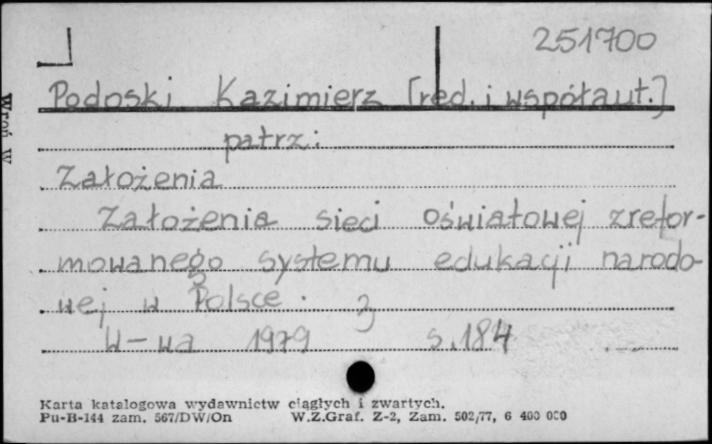 251700
Podoski Kazimierz [red. i współaut.]
patrz:
Założenia
Założenia sieci oświatowej zrefor-
mowanego systemu edukacji narodo-
wej w Polsce.
W-wa 1979 s. 184
Karta katalogowa wydawnictw ciągłych i zwartych.
Pu-B-144 zam. 567/DW/On W.Z.Graf. Z-2, Zam. 502/77, 6 400 000